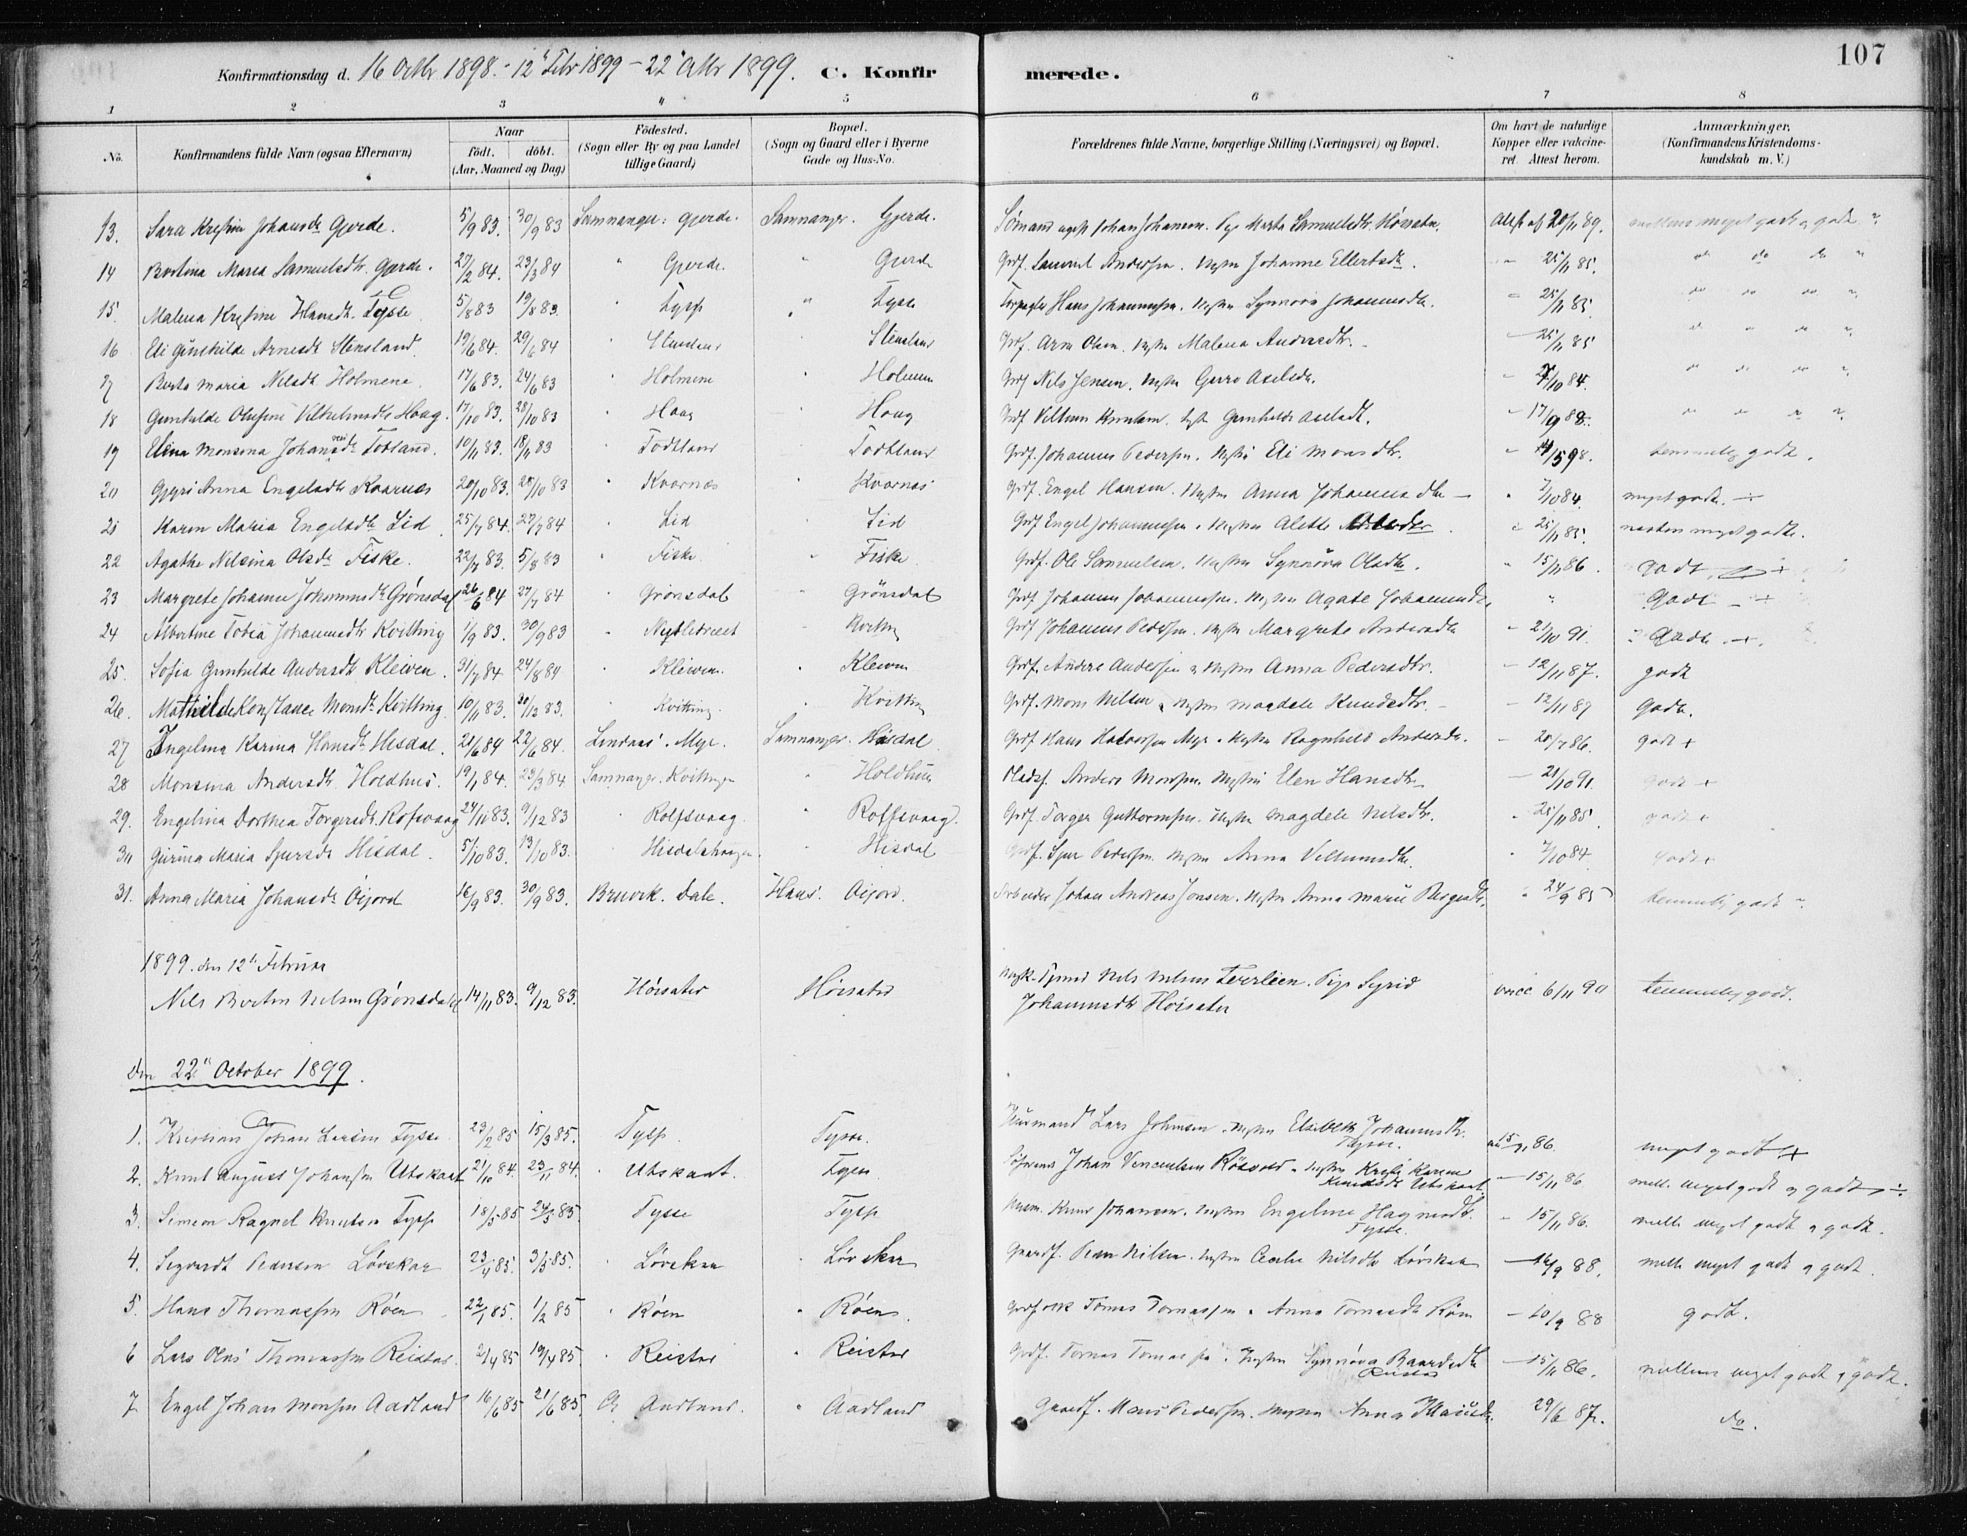 107
Konfirmationsdag d. 16 Octbr 1898. - 12' Febr 1899 - 22' Octbr 1899. C. Konfirmerede.
1 2 3 4 5 6 7 8
No. Konfirmandens fulde Navn (ogsaa Efternavn) Naar født. døbt. (Aar, Maaned og Dag) Födested. (Sogn eller By og paa Landet tillige Gaard) Bopæl. (Sogn og Gaard eller i Byerne Gade og Hus-No. Forældrenes fulde Navne, borgerlige Stilling (Næringsvei) og Bopæl. Om havt de naturlige Kopper eller vakcineret. Attest herom. Anmærkninger. (Konfirmandens Kristendomskundskab m. V.)
13. Sara Kristin Johansdr Gjerde. 5/9 83. 30/9 83 Samnanger: Gjerde. Samnanger. Gjerde. Johan Johansen. Pige Marta Samuelsdtr. Attest af 20/11 89. mellem meget godt og godt
14 Bertina Maria Samuelsdtr. Gjerde. 27/2 84. 23/3 84 " Gjerde. " Gjerde Grdf. Samuel Andersen. Hustru Johanne Ellertsdr. " 25/11 85. " do do "
15 Malena Kristine Hansdtr. Tysse 5/8 83 19/8 83. " Tysse " Tysse Hans Johannessen. Hustru Synnöva Johannesdtr. " 25/11 85. " " " "
16 Eli Gunhilde Arnesdtr Stensland. 19/6 84. 29/6 84 " Stensland " Stensland Grdf. Arne Olsen. Hustru Malena Andersdtr. - 25/11 85 " " " "
17 Berta Maria Nilsdtr Holmene. 17/6 83. 24/6 83 " Holmene " Holmene Grdf Nils Jensen. Hustru Axelsdr. - 7/10 84. " " " "
18 Gunhilde Olufine Vilhelmsdtr Haag. 17/10 83. 28/10 83 " Haag " Haag Grdf Villum Knutsen. Hustr Gunhilda Axelsdt. - 17/9 88. " " " "
19 Elena Monsina Johannesdtr Totland. 10/11 83. 18/11 83 " Todtland " Todtland Grdf. Johannes Pedersen. Hustru Eli Monsdtr. " 14/5 98. temmelig godt.
20 Gjyri Anna Engelsdtr Kvarnes 20/10 83. 28/10 83 " Kvarnes " Kvarnes Grdf. Engel Hansen. Hustru Anna Johannesdtr - " 7/10 84. meget godt. -
21 Karen Maria Engelsdtr Lid. 25/7 84. 27/7 84 " Lid " Lid Grdf Engel Johannessen. Hustru Alette " 25/11 85. næsten meget godt.
22 Agathe Nilsina Olsdr Fiske. 22/7 83. 5/8 83 " Fiske. " Fiske Grdf. Ole Samuelsen. Hustru Synnöva Olsdtr. " 15/11 86. godt. +
23 Margrete Johanne Johannesdtr Grönsdal 26/6 84 27/7 84 " Grönsdal " Grönsdal Grdf Johannes Johannessen. Hustru Agate Johannesdtr. " Godt - +
24 Albertine Tobia Johannesdtr Kvitting 1/9 83. 30/9 83 " " Kvitting Grdf Johannes Pedersen. Hustru Margrete Andersdtr - 21/10 91. Godt. +.
25. Sofia Gunhilde Andersdtr Kleiven. 31/7 84 24/8 84 " Kleiven. " Kleiven Grdf. Anders Andersen, Hustru Anna Pedersdtr. - 12/11 87. godt
26. Mathilde Konstance Monsdtr Kvitting. 10/11 83. 30/12 83. " Kvitting. " Kvitting Grdf Mons Nilsen, Hustru Magdele Knudsdtr. - 12/11 87 Godt.
27 Ingelina Karina Hansdtr Hisdal. 21/6 84 22/6 84. Lindaas. Mye. Samnanger. Hisdal Grdf Hans Halvorsen Mye. Hustru Ragnhild Andersdr. - 20/7 86. godt +
28 Monsina Andersdtr Holdhus. 19/1 84. 23/3 84 Samnanger. Kvitting " Holdhus Pladsf. Anders Monsen. Hustru Elen Hansdtr - 21/10 91. godt +
29. Engelina Dorthea Torgersdtr. Rolfsvaag 24/11 83. 9/12 83 " Rolfsvaag. " Rolfsvaag. Grdf. Torger Guttormsen. Hustru Magdele Nilsdtr. " 25/11 85. godt +
30 Gurina Maria Sjursdr Hisdal. 5/10 83. 13/10 83. " Hisdalshaugen. " Hisdal Grdf. Sjur Pedersen. Hustru Anna Villumsdtr. " 7/10 84 godt +
31. Anna Maria Johansdr Öijord 16/9 83. 30/9 83. Bruvik. Dale. Haus. Öijord. Arbeider Johan Andreas Jensen. Hustru Anna Marie " 24/9 85 temmelig godt
1899. den 12te Februar
Nils Bertin Nilsen Grönsdal 14/11 83. 9/12 83. Höisæter Höisæter Nils Nilsen. Pige Sigrid
Johannesdtr Höisæter vacc. 6/11 90 temmelig godt.
Den 22' October 1899.
1. Kristians Johan Larsen Tysse 23/2 85 15/3 85. Tysse. Tysse. Husmand Lars Johnsen. Hustru Elisbeth Johannesdtr. Tysse. 15/11 86. meget godt +
2. Knut August Johansen Utskaat 21/10 84. 23/11 84. " Utskaat. Tysse Johan Vincentsen Hustru Kristi Karine Knudsdtr Utskaat - 15/11 86 mell. meget godt og godt
3. Simeon Ragnel Knutsen Tysse 18/5 85 24/5 85. " Tysse Tysse Husm. Knut Johansen. Hustru Engeline Tysse. - 15/11 86. mell. meget godt og godt.
4. Sigvardt Pedersen Lövskar 23/4 85. 3/5 85. " Lövskar " Löv Skar Gaardf. Peder Nilsen. Hustru Cecilie Nilsdtr Lövskar - 14/9 88. mell. meget godt og godt.
5. Hans Thomassen Röen 22/1 85. 1/2 85 " Röen " Röen. Tomas Tomassen. Anna Tomasdtr Röen - 10/9 88 godt.
6 Lars Olai Thomassen Reistad 2/4 85 19/4 85. " Reistad " Reistad Grdf. Tomas Tomassen. Hustru Synnöva Baardsdtr Reistad - 15/11 86. mellem meget godt og godt.
7 Engel Johan Monsen Aadland 16/6 85 21/6 85. Aadland. " Aadland Gaardf. Mons Pedersen. Hustru Anna 29/6 87. do.